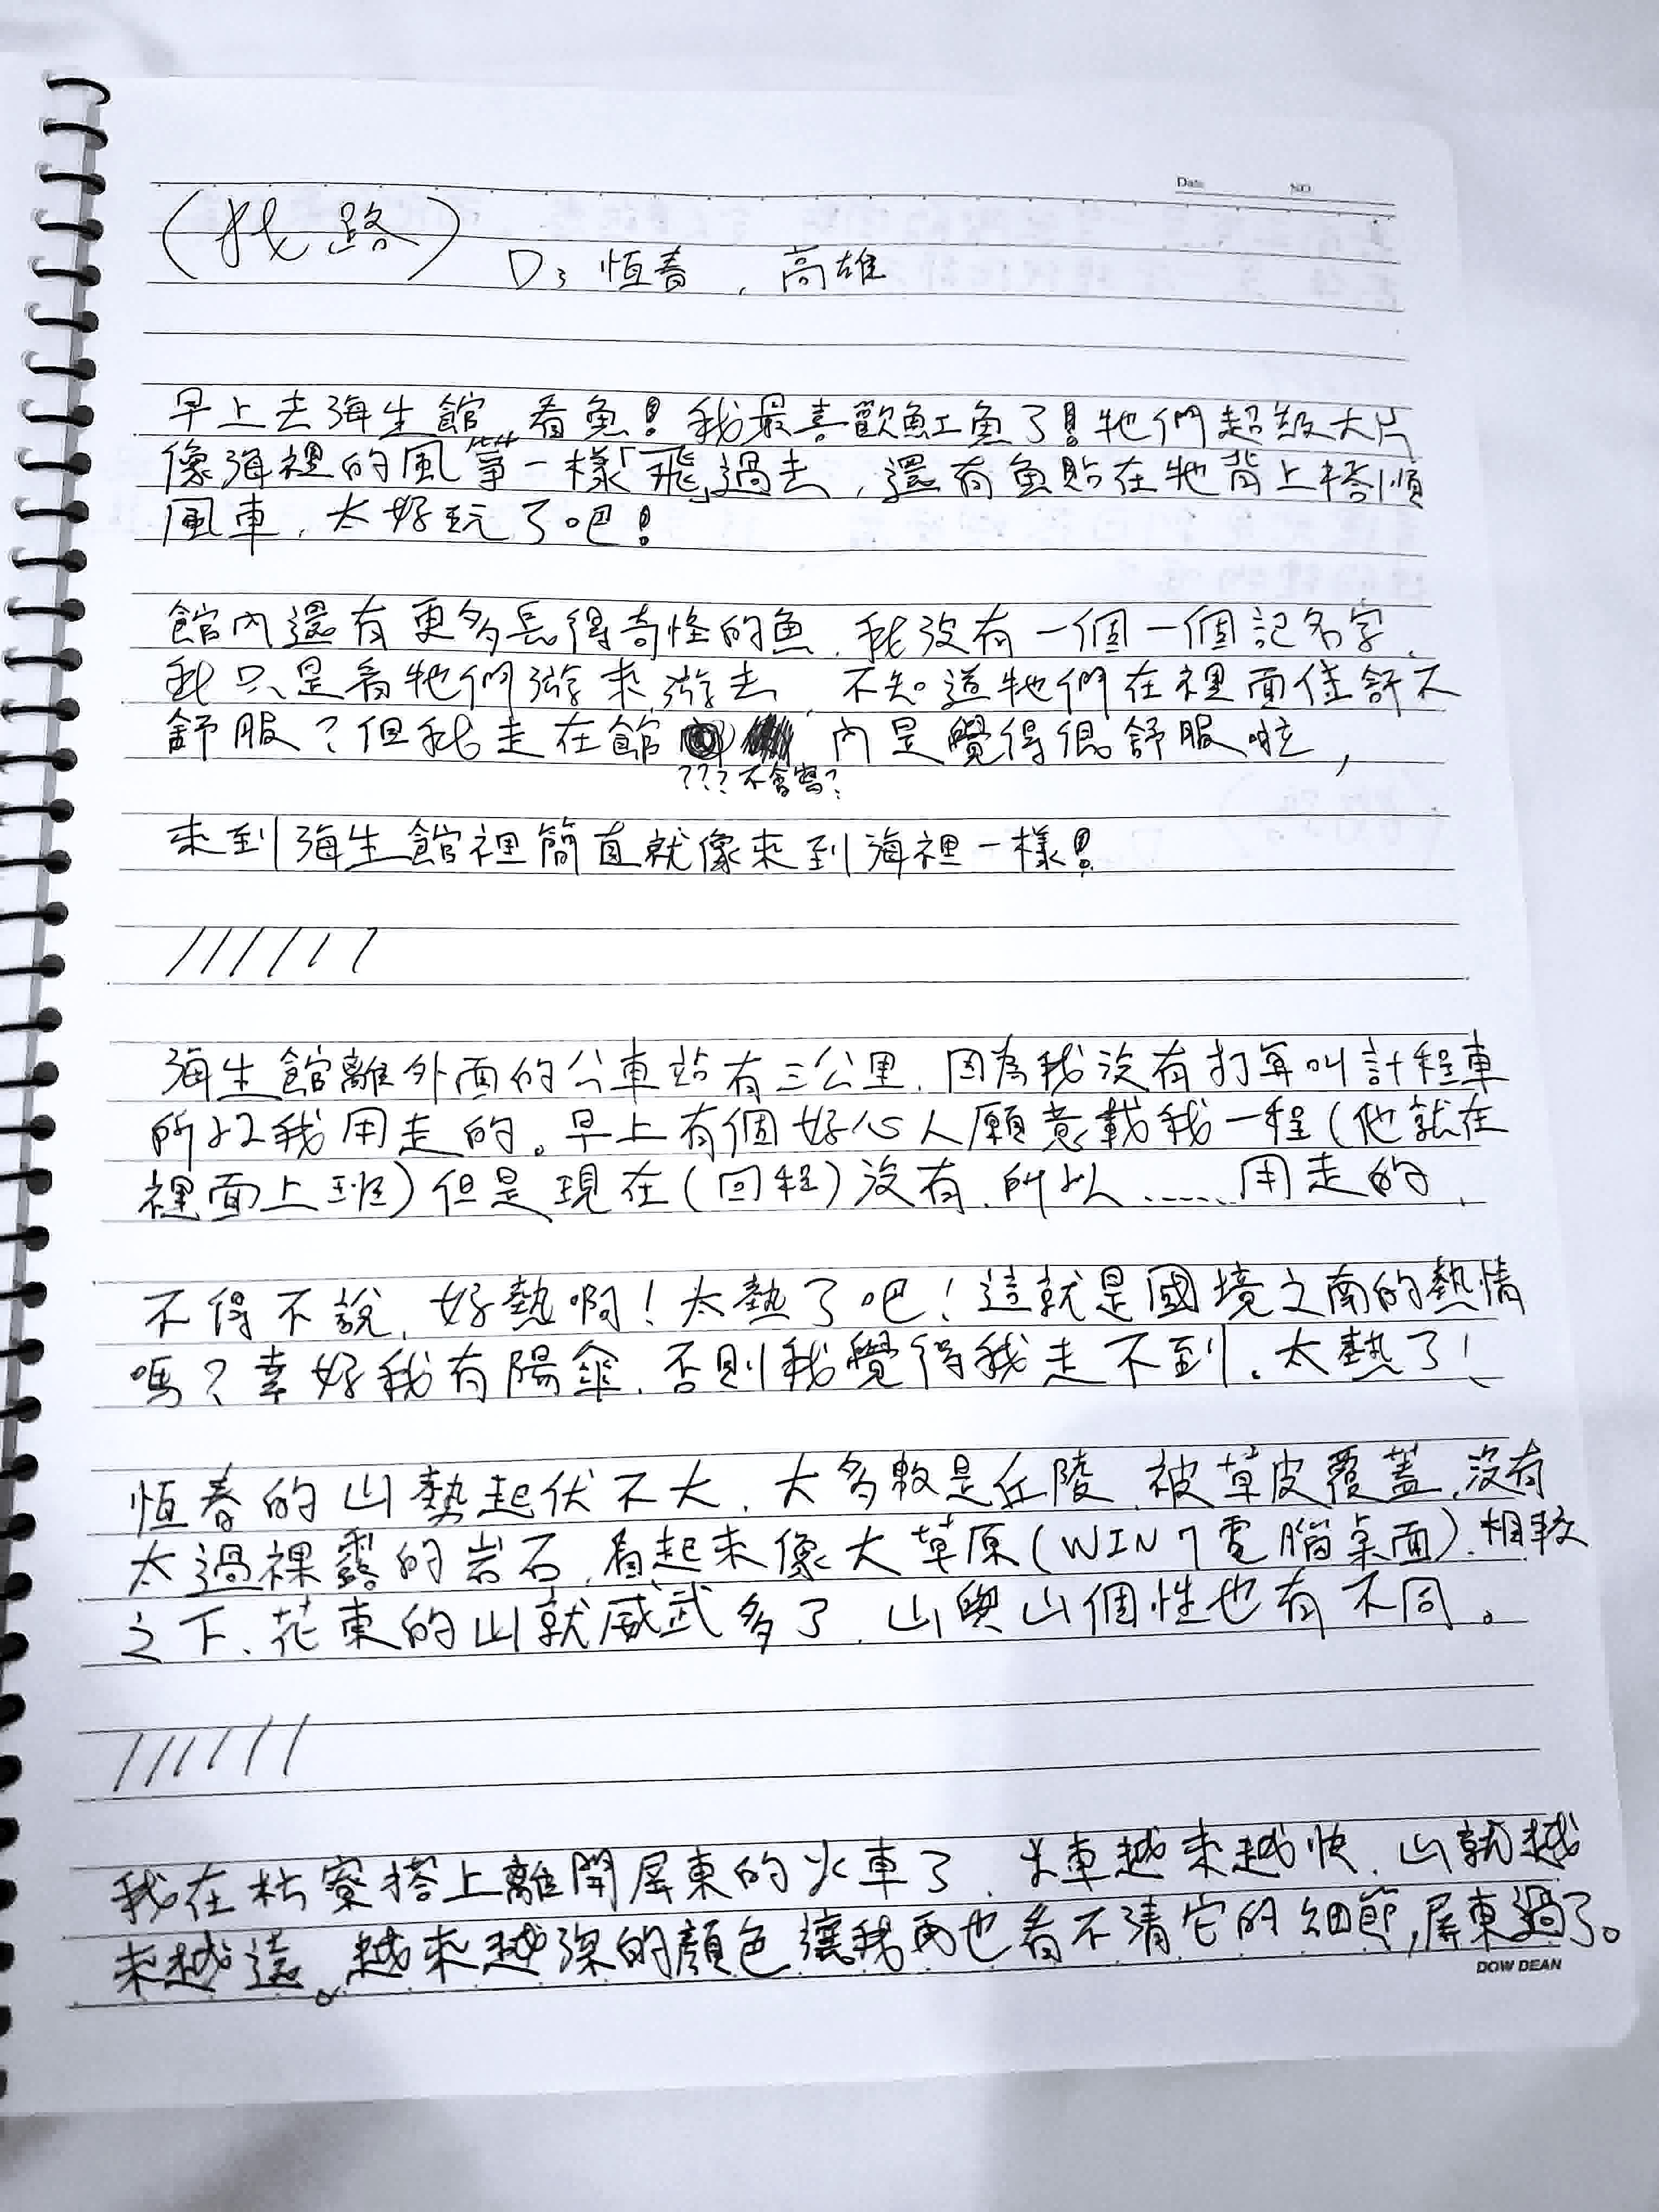 Date NO
(找路)
D3 恆春，高雄
早上去海生館看魚！我最喜歡魟魚了！牠們超級大片
像海裡的風箏一樣「飛」過去，還有魚貼在牠背上搭順
風車，太好玩了吧！
館內還有更多長得奇怪的魚，我沒有一個一個記名字，
我只是看牠們游來游去，不知道牠們在裡面住舒不
舒服？但我走在館 內是覺得很舒服啦，
???不會寫?
來到海生館裡簡直就像來到海裡一樣！
//////
海生館離外面的公車站有三公里，因為我沒有打算叫計程車
所以我用走的。早上有個好心人願意載我一程(他就在
裡面上班)但是現在(回程)沒有，所以……用走的，
不得不說，好熱啊！太熱了吧！這就是國境之南的熱情
嗎？幸好我有陽傘，否則我覺得我走不到，太熱了！
恆春的山勢起伏不大，大多數是丘陵，被草皮覆蓋，沒有
太過裸露的岩石，看起來像大草原(WIN7電腦桌面)，相較
之下，花東的山就威武多了，山與山個性也有不同。
//////
我在枋寮搭上離開屏東的火車了，火車越來越快，山就越
來越遠。越來越深的顏色讓我再也看不清它的細節，屏東過了。
DOW DEAN